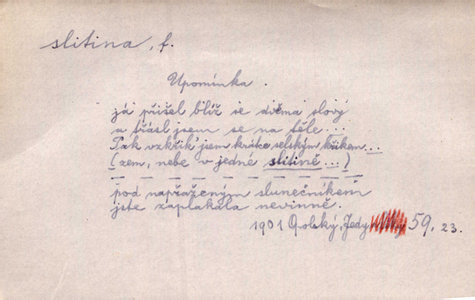 slitina, f.
Upomínka.
já přišel blíž se dvěma slovy
a třásl jsem se na těle...
Pak vzkřik jsem krátce selským křikem...
(zem, nebe v jedné slitině...)
pod napřaženým slunečníkem
jste zaplakala nevinně.
1901 Gellner, Jedy 59. 23.